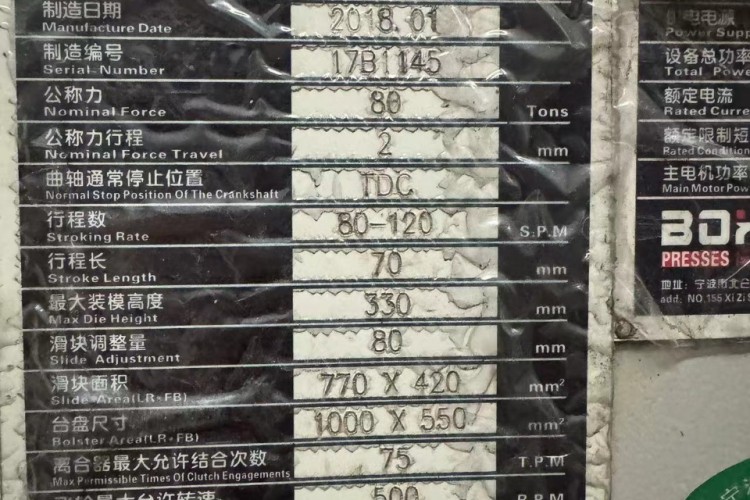 制造日期 2018.01
Manufacture Date
制造编号 17B1145
Serial-Number
公称力 80
Nominal Force Tons
公称力行程 2
Nominal Force Travel mm
曲轴通常停止位置 TDC
Normal Stop Position Of The Crankshaft
行程数 80-120
Stroking Rate S.P.M
行程长 70
Stroke Length mm
最大装模高度 330
Max Die Height mm
滑块调整量 80
Slide Adjustment mm
滑块面积 770 X 420 mm²
Slide Area(LR×FB)
台盘尺寸 1000 X 550 mm²
Bolster Area(LR×FB)
离合器最大允许结合次数 75 T.P.M
Max Permissible Times Of Clutch Engagements
最大允许转速 500 R.P.M
电源
Power Supp
设备总功率
Total Powe
额定电流
Rated Curre
额定限制短
Rated Condition
主电机功率
Main Motor Pow
PRESSES
地址: 宁波市北
add: NO.155 Xi Zi